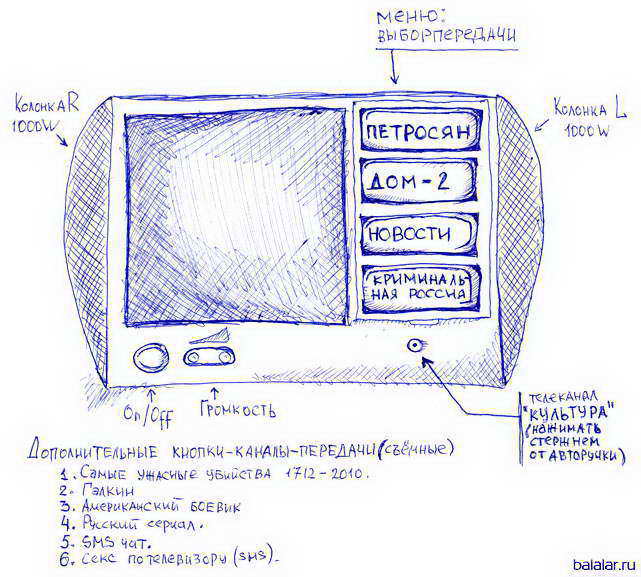 МЕНЮ:
ВЫБОРПЕРЕДАЧИ
КОЛОНКА R
1000W
КОЛОНКА L
1000W
ПЕТРОСЯН
ДОМ-2
НОВОСТИ
КРИМИНАЛЬ-
НАЯ РОССИЯ
On/Off
ГРОМКОСТЬ
ТЕЛЕКАНАЛ
"КУЛЬТУРА"
(НАЖИМАТЬ
СТЕРЖНЕМ
ОТ АВТОРУЧКИ)
ДОПОЛНИТЕЛЬНЫЕ КНОПКИ-КАНАЛЫ-ПЕРЕДАЧИ (СЪЁМНЫЕ)
1. САМЫЕ УЖАСНЫЕ УБИЙСТВА 1712-2010.
2. ГАЛКИН
3. АМЕРИКАНСКИЙ БОЕВИК
4. РУССКИЙ СЕРИАЛ.
5. SMS ЧАТ.
6. СЕКС ПО ТЕЛЕВИЗОРУ (SMS).
balalar.ru